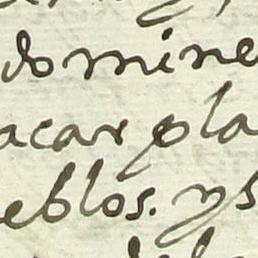 do mine
acar pla
eblos. y s